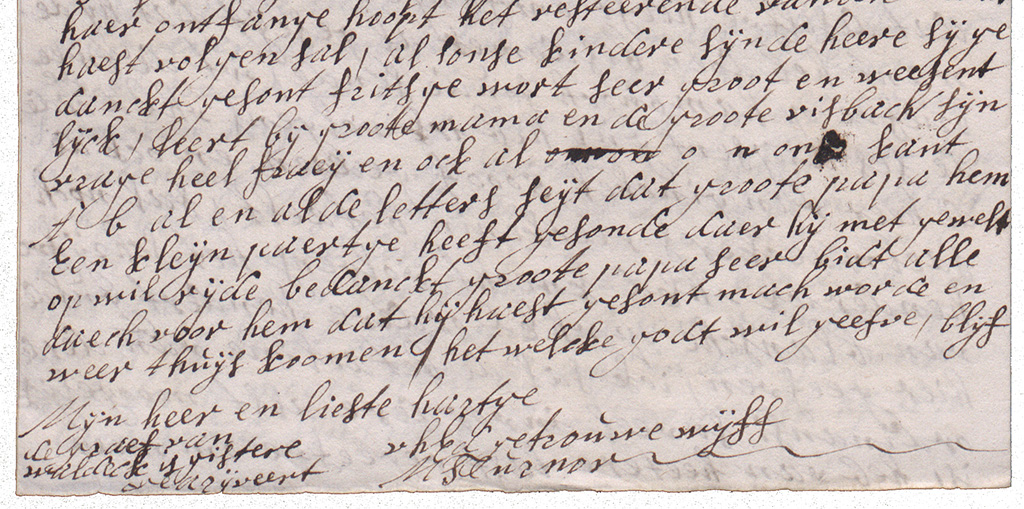 haer ontfange hoopt het resteerende vanden
haest volgen sal, al onse kindere sijnde heere sij ge
danckt gesont fritsge wort seer groot en weesent
lijck, leert bij groote mama en de groote visbach sijn
vrage heel fraeij en ock al o n ons kant
b al en al de letters seijt dat groote papa hem
Een kleijn paertge heeft gesonde daer hij met gewelt
op wil rijde bedanckt groote papa seer bidt alle
daech voor hem dat hij haest gesont mach worde en
weer thuijs koomen / het welcke godt wil geefve, blijf
Mijn heer en liefste hartge
de graef van
waldeck is gistere
gearijveert
uhEd getrouwe wijff
M Teurnor